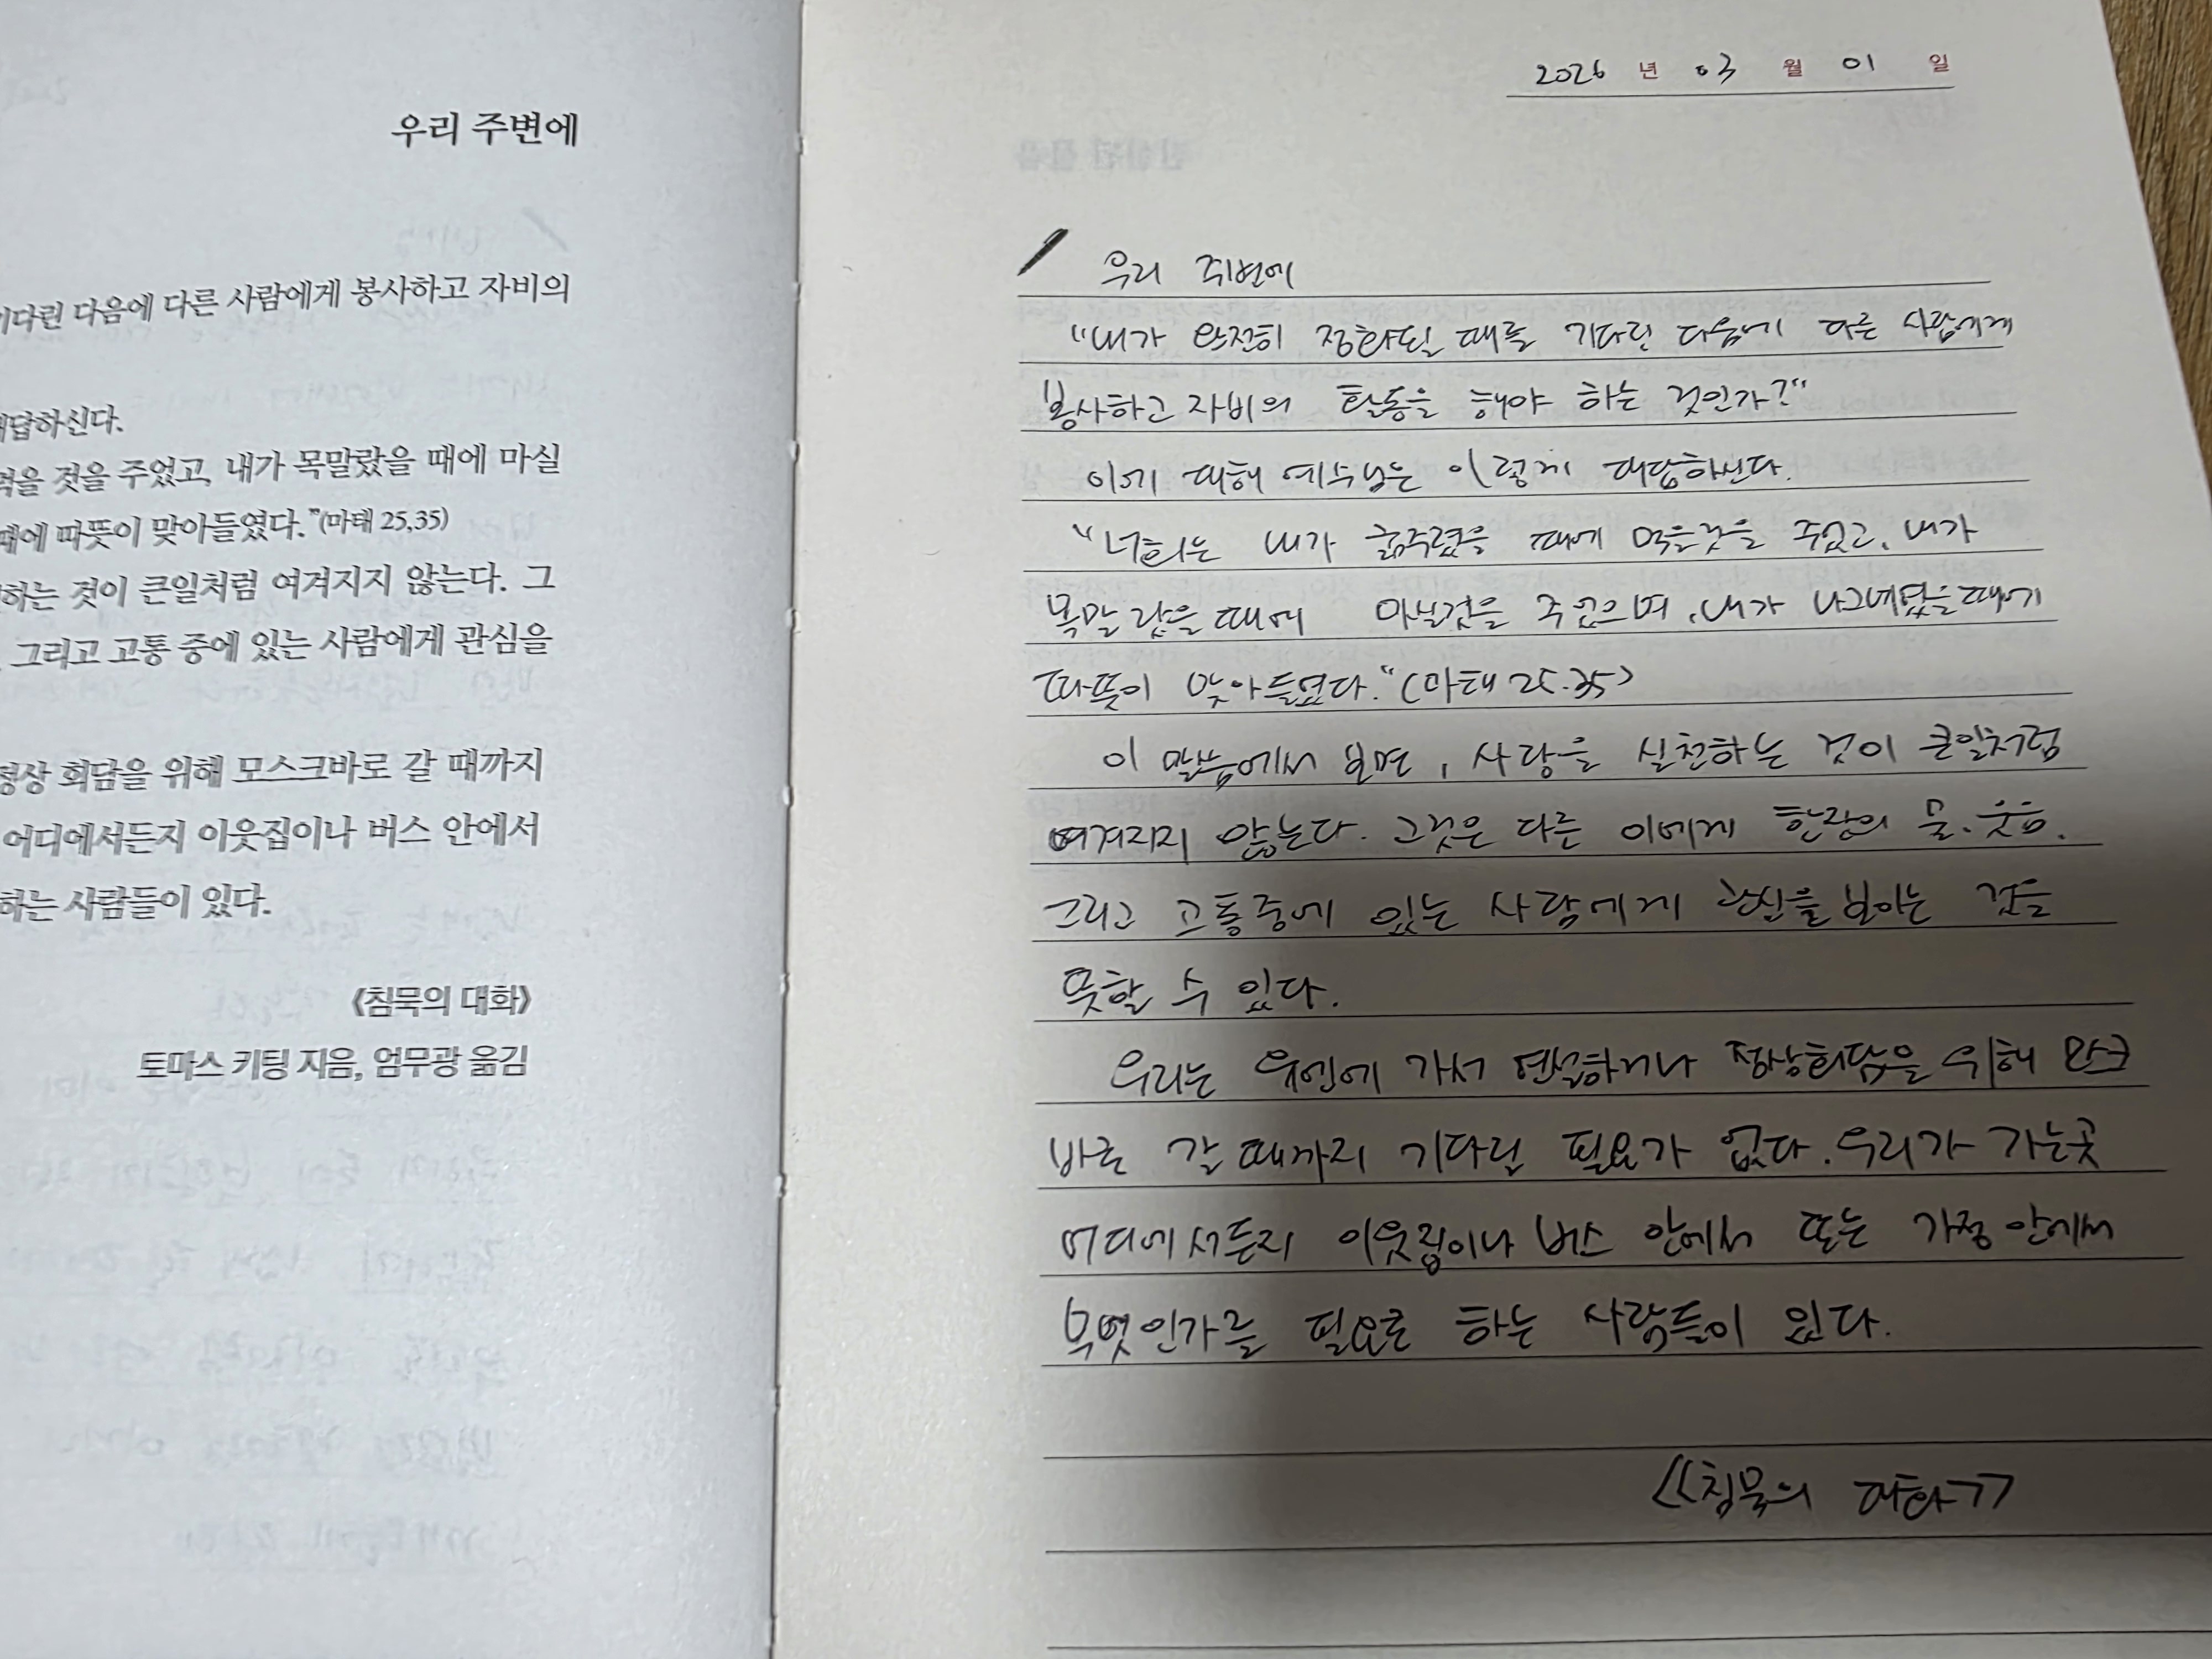 우리 주변에
기다린 다음에 다른 사람에게 봉사하고 자비의
대답하신다.
먹을 것을 주었고, 내가 목말랐을 때에 마실
때에 따뜻이 맞아들였다.”(마태 25,35)
하는 것이 큰일처럼 여겨지지 않는다. 그
그리고 고통 중에 있는 사람에게 관심을
정상 회담을 위해 모스크바로 갈 때까지
어디에서든지 이웃집이나 버스 안에서
하는 사람들이 있다.
《침묵의 대화》
토마스 키팅 지음, 엄무광 옮김
2026 년 03 월 01 일
우리 주변에
"내가 완전히 정화될 때를 기다린 다음에 다른 사람에게
봉사하고 자비의 활동을 해야 하는 것인가?"
이에 대해 예수님은 이렇게 대답하신다.
"너희는 내가 굶주렸을 때에 먹을것을 주었고, 내가
목말랐을 때에 마실것을 주었으며, 내가 나그네였을때에
따뜻이 맞아들였다."(마태 25.35)
이 말씀에서 보면, 사랑을 실천하는 것이 큰일처럼
여겨지지 않는다. 그것은 다른 이에게 한잔의 물, 웃음,
그리고 고통중에 있는 사람에게 관심을 보이는 것을
뜻할 수 있다.
우리는 유엔에 가서 연설하거나 정상회담을 위해 모스크
바로 갈 때까지 기다릴 필요가 없다. 우리가 가는곳
어디에서든지 이웃집이나 버스 안에서 또는 가정 안에서
무엇인가를 필요로 하는 사람들이 있다.
《침묵의 대화》